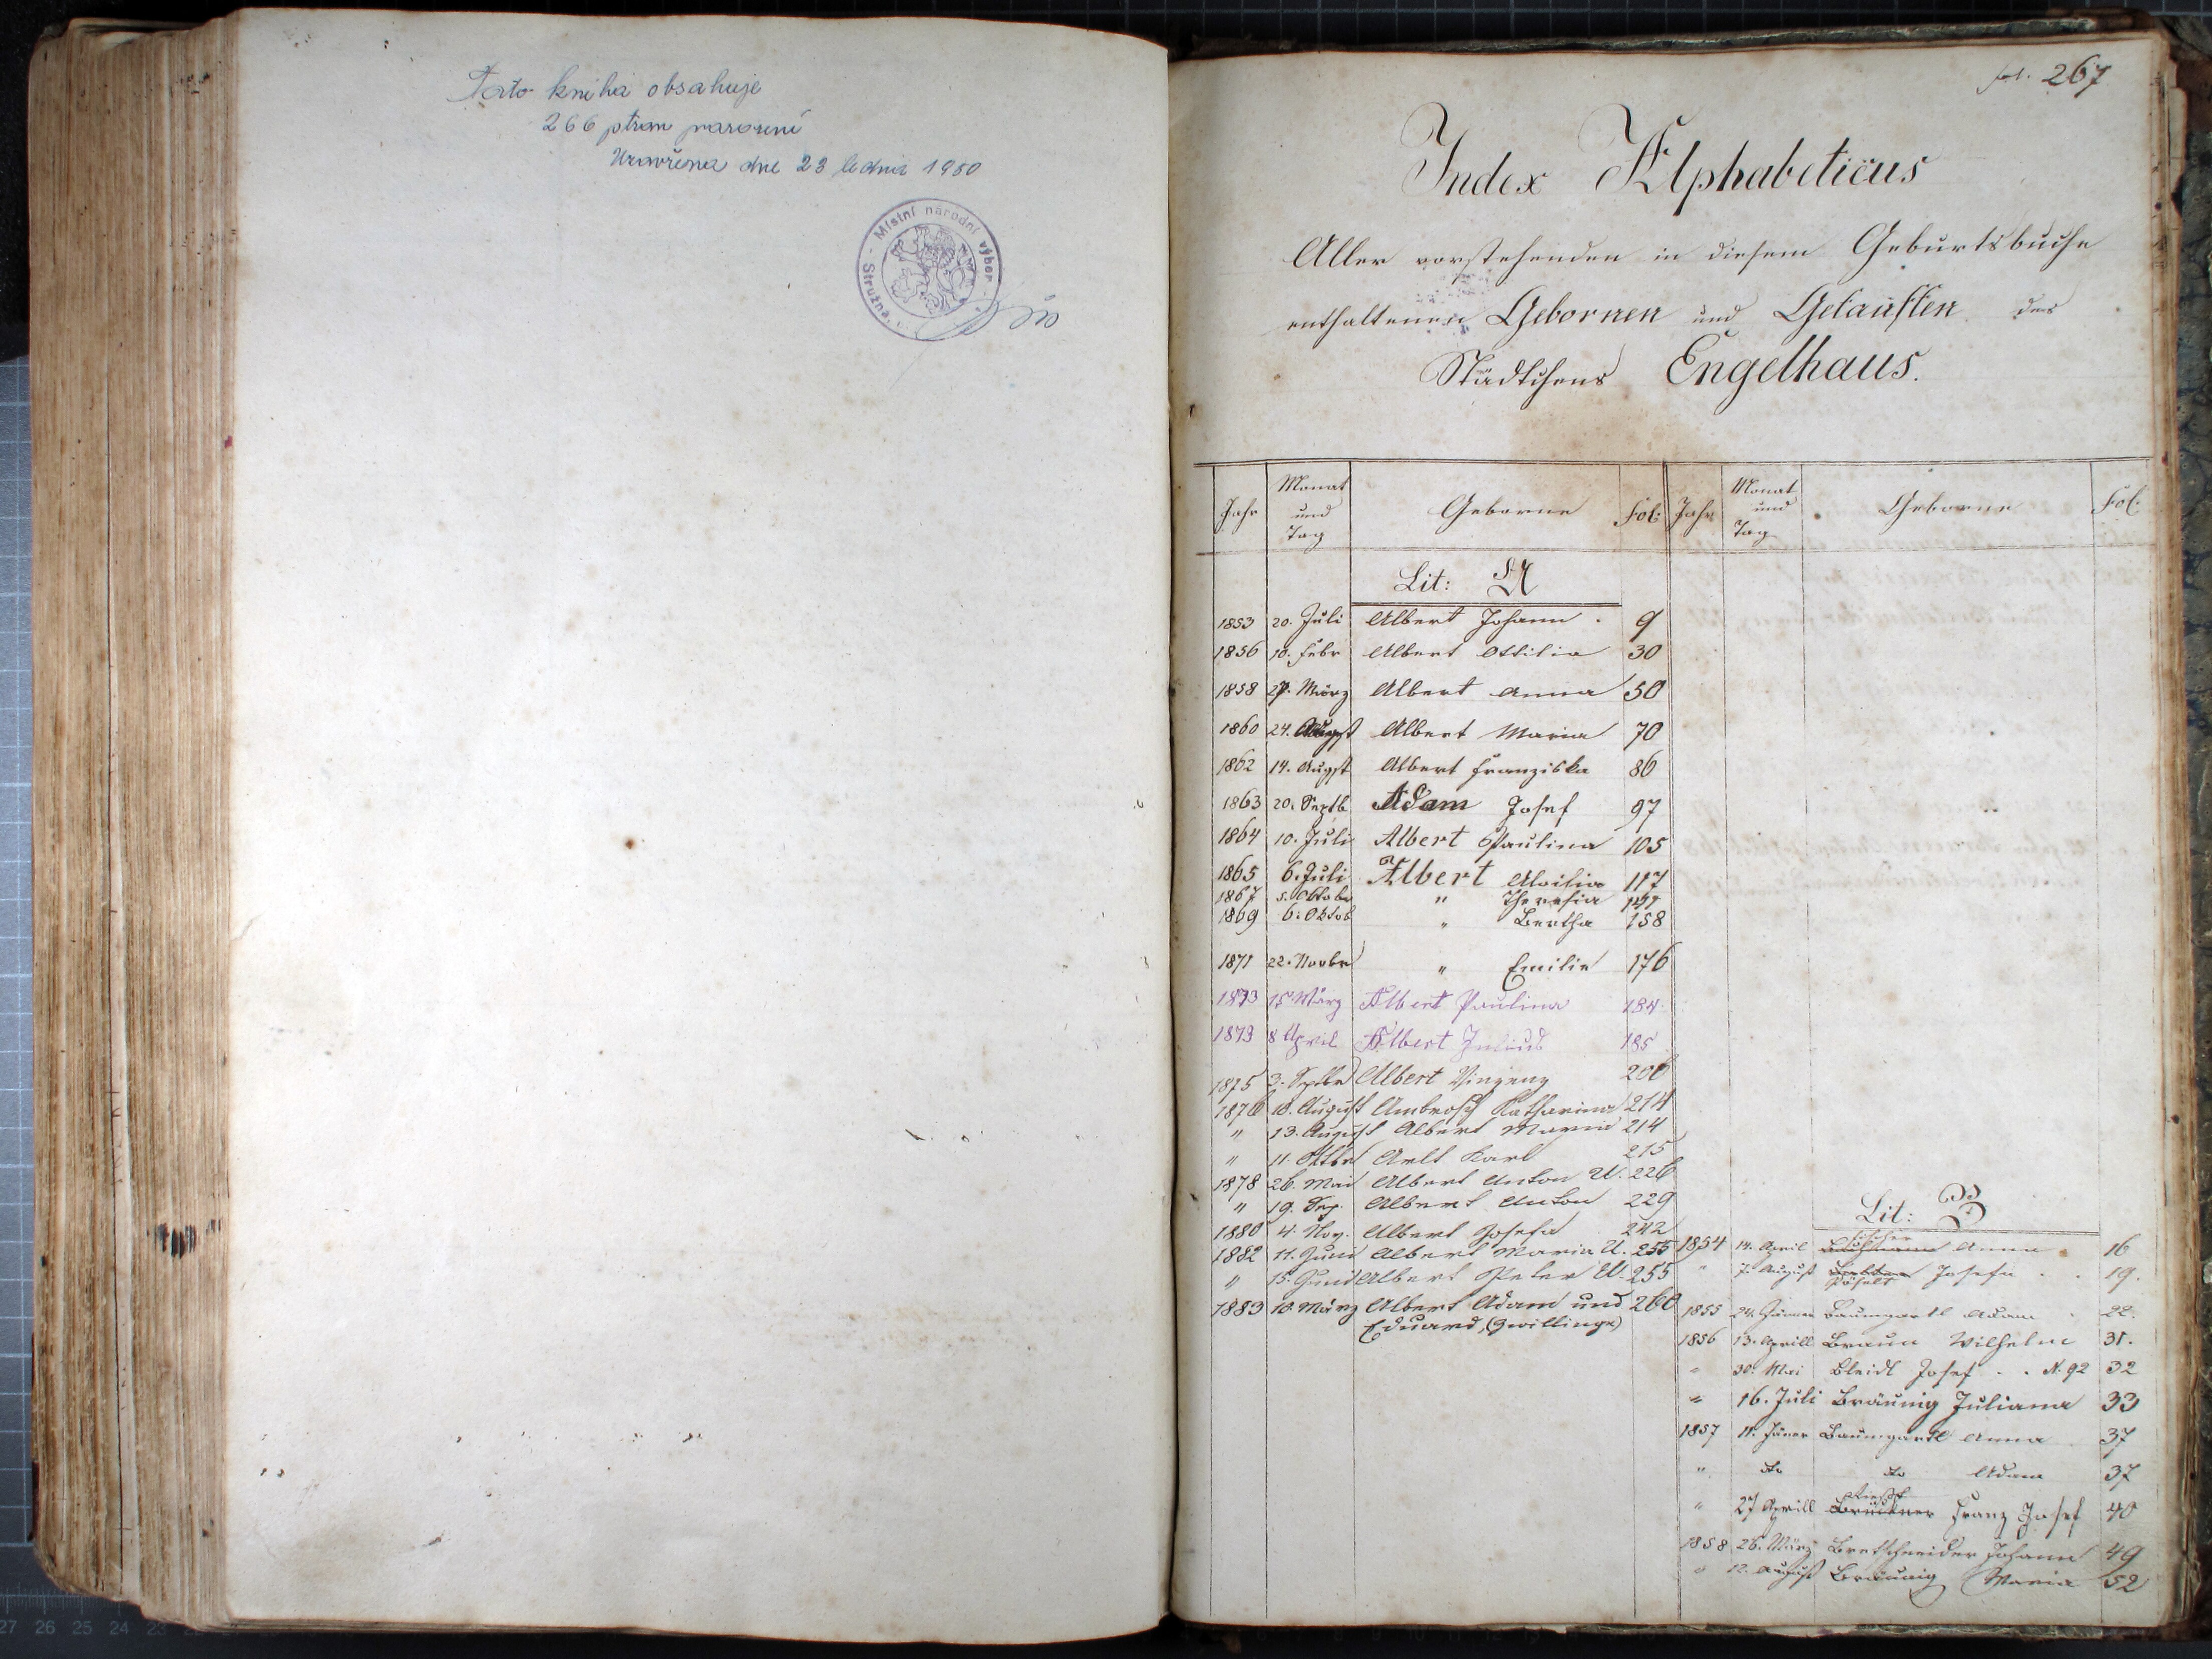 Tato kniha obsahuje
266 stran narození
Uzavřena dne 23 ledna 1950
Místní národní výbor
Stružná
fol. 267
Index Alphabeticus
Aller vorstehenden in diesem Geburtsbuche
enthaltenen Gebornen und Getauften des
Städtchens Engelhaus.
Jahr Monat und Tag Geborne Fol: Jahr Monat und Tag Geborne Fol:
Lit: A
1853 20. Juli Albert Johann . 9
1856 10. Febr Albert Ottilia 30
1858 27. März Albert Anna 50
1860 24. August Albert Maria 70
1862 14. Augst Albert Franziska 86
1863 20. Septb Adam Josef 97
1864 10. Juli Albert Paulina 105
1865 6. Juli Albert Aloisia 117
1867 5. Oktober " Theresia
1869 6. Oktob " Bertha 158
1871 22. Novbr " Emilie 176
1873 15 März Albert Paulina 184
1873 8 April Albert Julius 185
1875 3. Septbr Albert Vinzenz 206
1876 10. August Ambrosch Katharina 214
" 13. August Albert Maria 214
" 11. Oktbr Arlt Karl 215
1878 26. Mai Albert Anton U. 226
" 19. Sep. Albert Anton 229
1880 4. Nov. Albert Josefa 242
1882 11. Juni Albert Maria U. 255
" 15. Juni Albert Peter U. 255
1883 10. März Albert Adam und 260
Eduard, (Zwillinge)
Lit: B
1854 14. April Anna . 16
" 7. August Pöhnelt Josefa . . 19.
1855 24. Jänner Baumgartl Adam . 22.
1856 13. Aprill Braun Wilhelm 31.
" 30. Mai Bleidl Josef . . N. 92 32
" 16. Juli Bräunig Juliana 33
1857 11. Jäner Baumgartl Anna 37
" do do Adam 37
" 27 Aprill Brückner Franz Josef 40
1858 26. März Bretschneider Johann 49
" 12. August Bräunig Maria 52